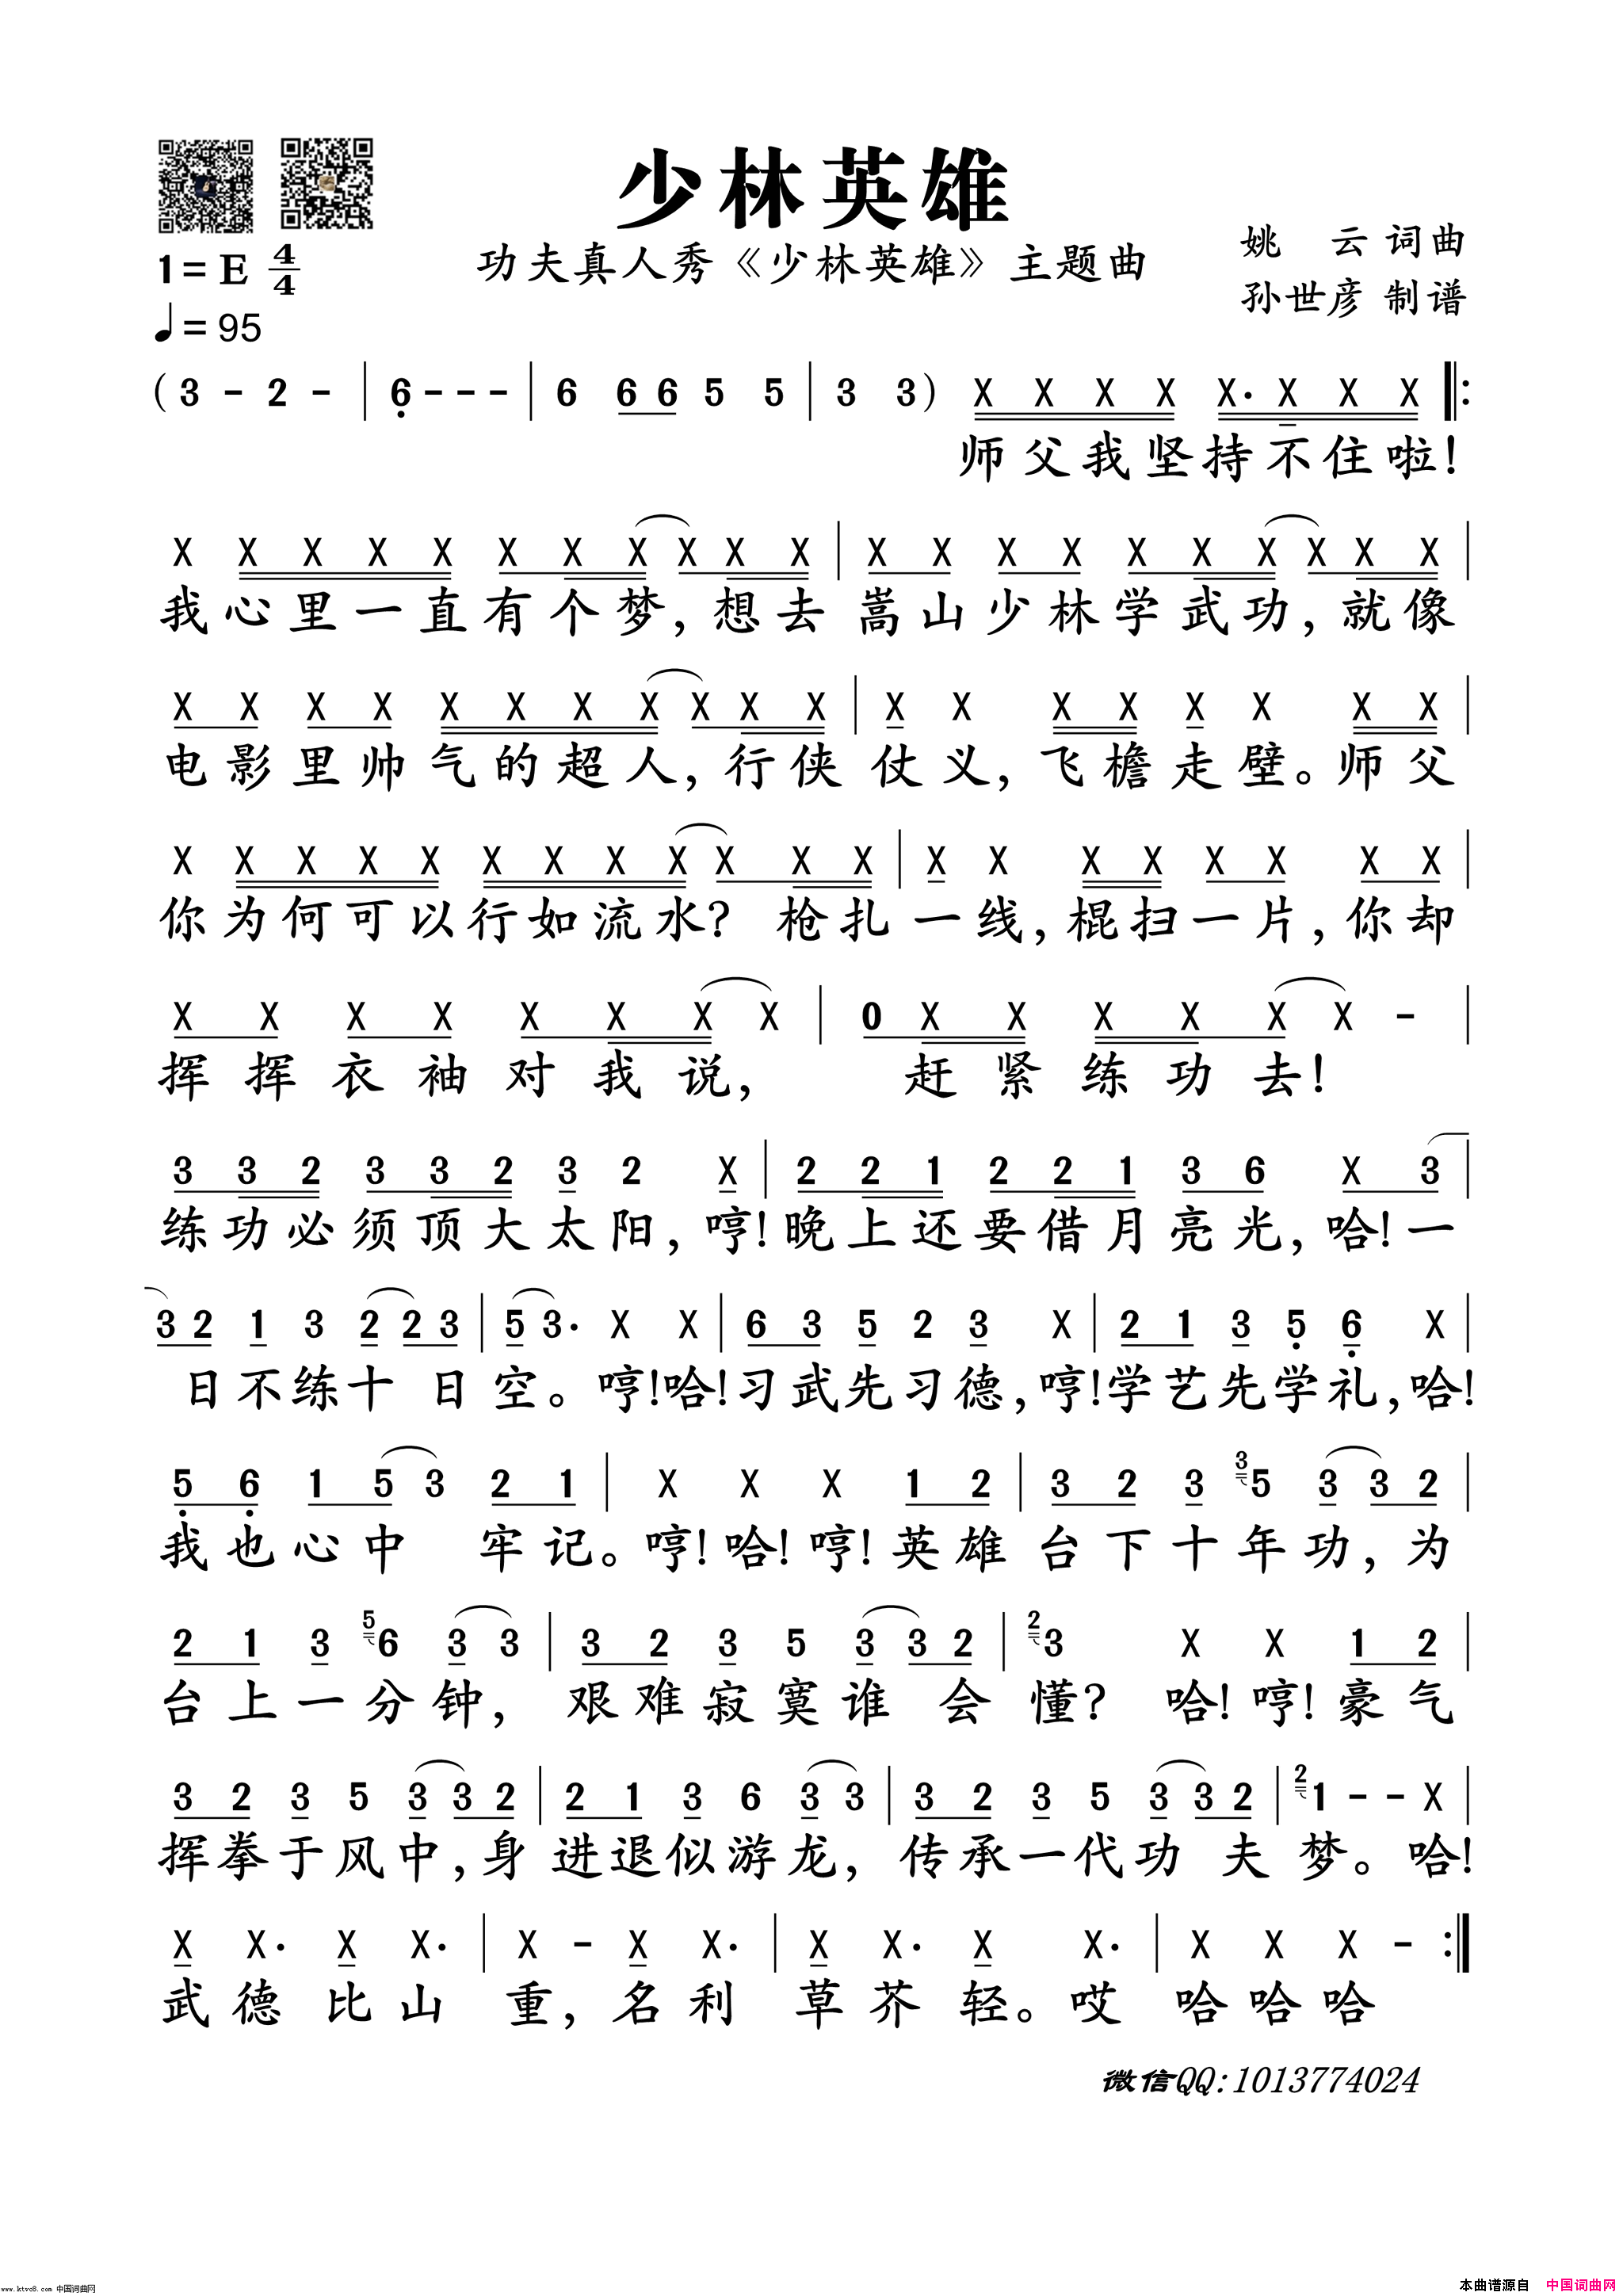 少林英雄
功夫真人秀《少林英雄》主题曲
姚 云 词曲
孙世彦 制谱
1=E 4/4
♩=95
(3 - 2 - | 6 - - - | 6 6 6 5 5 | 3 3) X X X X X· X X X ‖:
师父我坚持不住啦!
X X X X X X X X X X X | X X X X X X X X X X |
我心里一直有个梦,想去嵩山少林学武功,就像
X X X X X X X X X X X | X X X X X X X X |
电影里帅气的超人,行侠仗义,飞檐走壁。师父
X X X X X X X X X X X X | X X X X X X X X |
你为何可以行如流水?枪扎一线,棍扫一片,你却
X X X X X X X X | 0 X X X X X X - |
挥挥衣袖对我说,赶紧练功去!
3 3 2 3 3 2 3 2 X | 2 2 1 2 2 1 3 6 X 3 |
练功必须顶大太阳,哼!晚上还要借月亮光,哈!一
3 2 1 3 2 2 3 | 5 3· X X | 6 3 5 2 3 X | 2 1 3 5 6 X |
日不练十日空。哼!哈!习武先习德,哼!学艺先学礼,哈!
5 6 1 5 3 2 1 | X X X 1 2 | 3 2 3 3 5 3 3 2 |
我也心中牢记。哼!哈!哼!英雄台下十年功,为
2 1 3 5 6 3 3 | 3 2 3 5 3 3 2 | 2 3 X X 1 2 |
台上一分钟,艰难寂寞谁会懂?哈!哼!豪气
3 2 3 5 3 3 2 | 2 1 3 6 3 3 | 3 2 3 5 3 3 2 | 2 1 - - X |
挥拳于风中,身进退似游龙,传承一代功夫梦。哈!
X X· X X· | X - X X· | X X· X X· | X X X - :‖
武德比山重,名利草芥轻。哎哈哈哈
微信QQ:1013774024
www.ktvc8.com 中国词曲网
本曲谱源自 中国词曲网